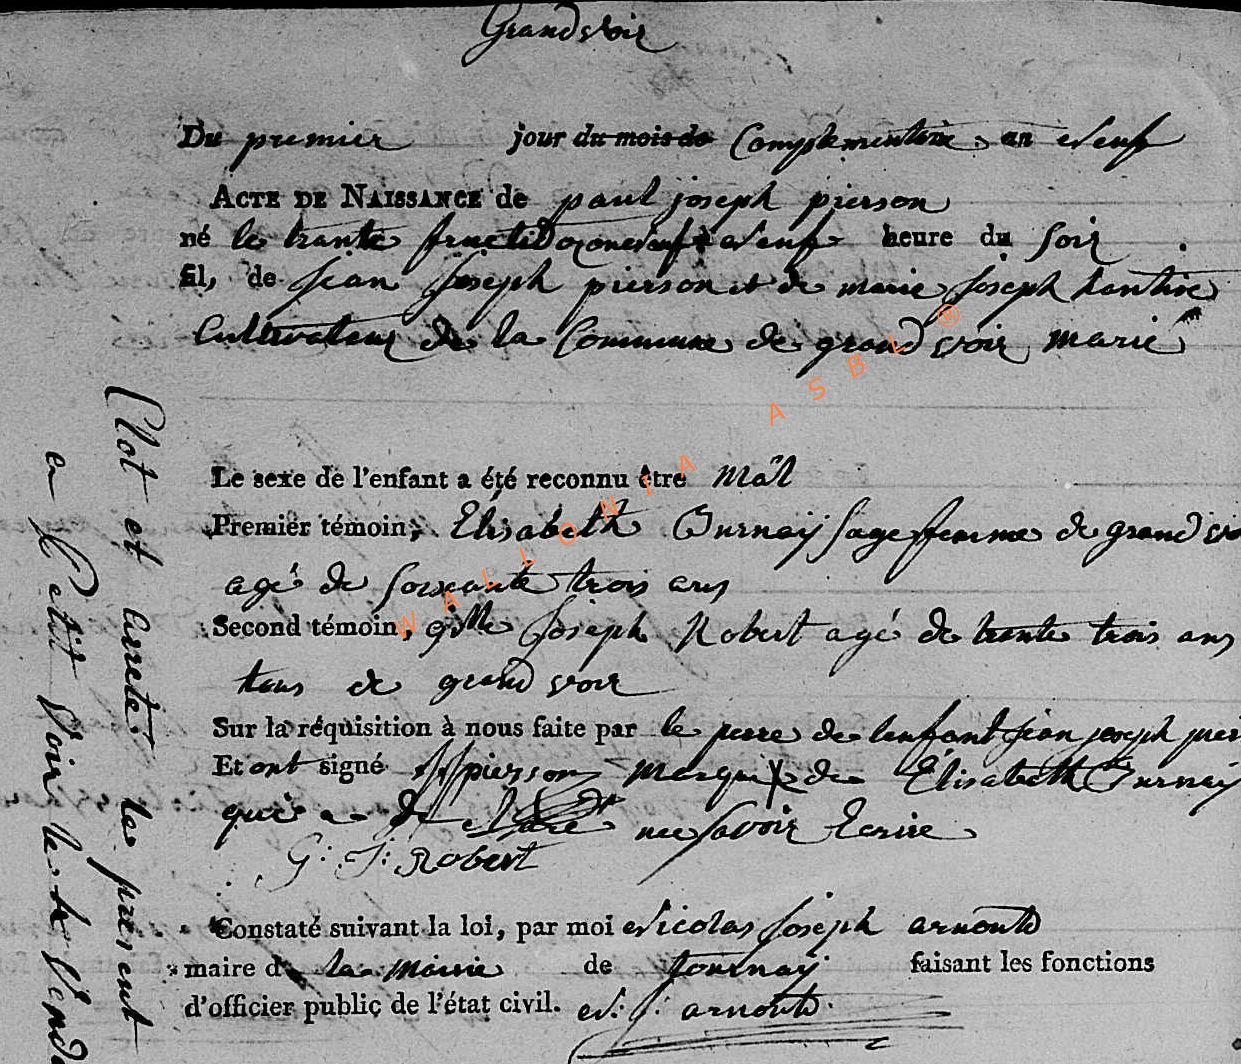 Grandvoir
Du premier jour du mois de Complementaire an Neuf
ACTE DE NAISSANCE de paul joseph pierson
né le trante fructidor an neuf à Neuf heure du Soir
fil, de jean Joseph pierson et de marie Joseph hantire
Cultivateur de la Commune de grand voir marié
Le sexe de l'enfant a été reconnu être mâl
Premier témoin, Elisabeth Burnay Sage femme de grand vo
agé de soixante trois ans
Second témoin, gille Joseph Robert agé de trente trois ans
de grand voir
Sur la réquisition à nous faite par le pere de lenfant jean joseph pier
Et ont signé JJ pierson marque X de Elisabeth Burnay
qui a déclaré ne savoir Ecrire
G: J: Robert
Constaté suivant la loi, par moi Nicolas Joseph arnould
maire d la mairie de tournay faisant les fonctions
d'officier public de l'état civil. N: J: arnould
Clot et arreté le present
a Petit Voir le
WALLONIA ASBL ®